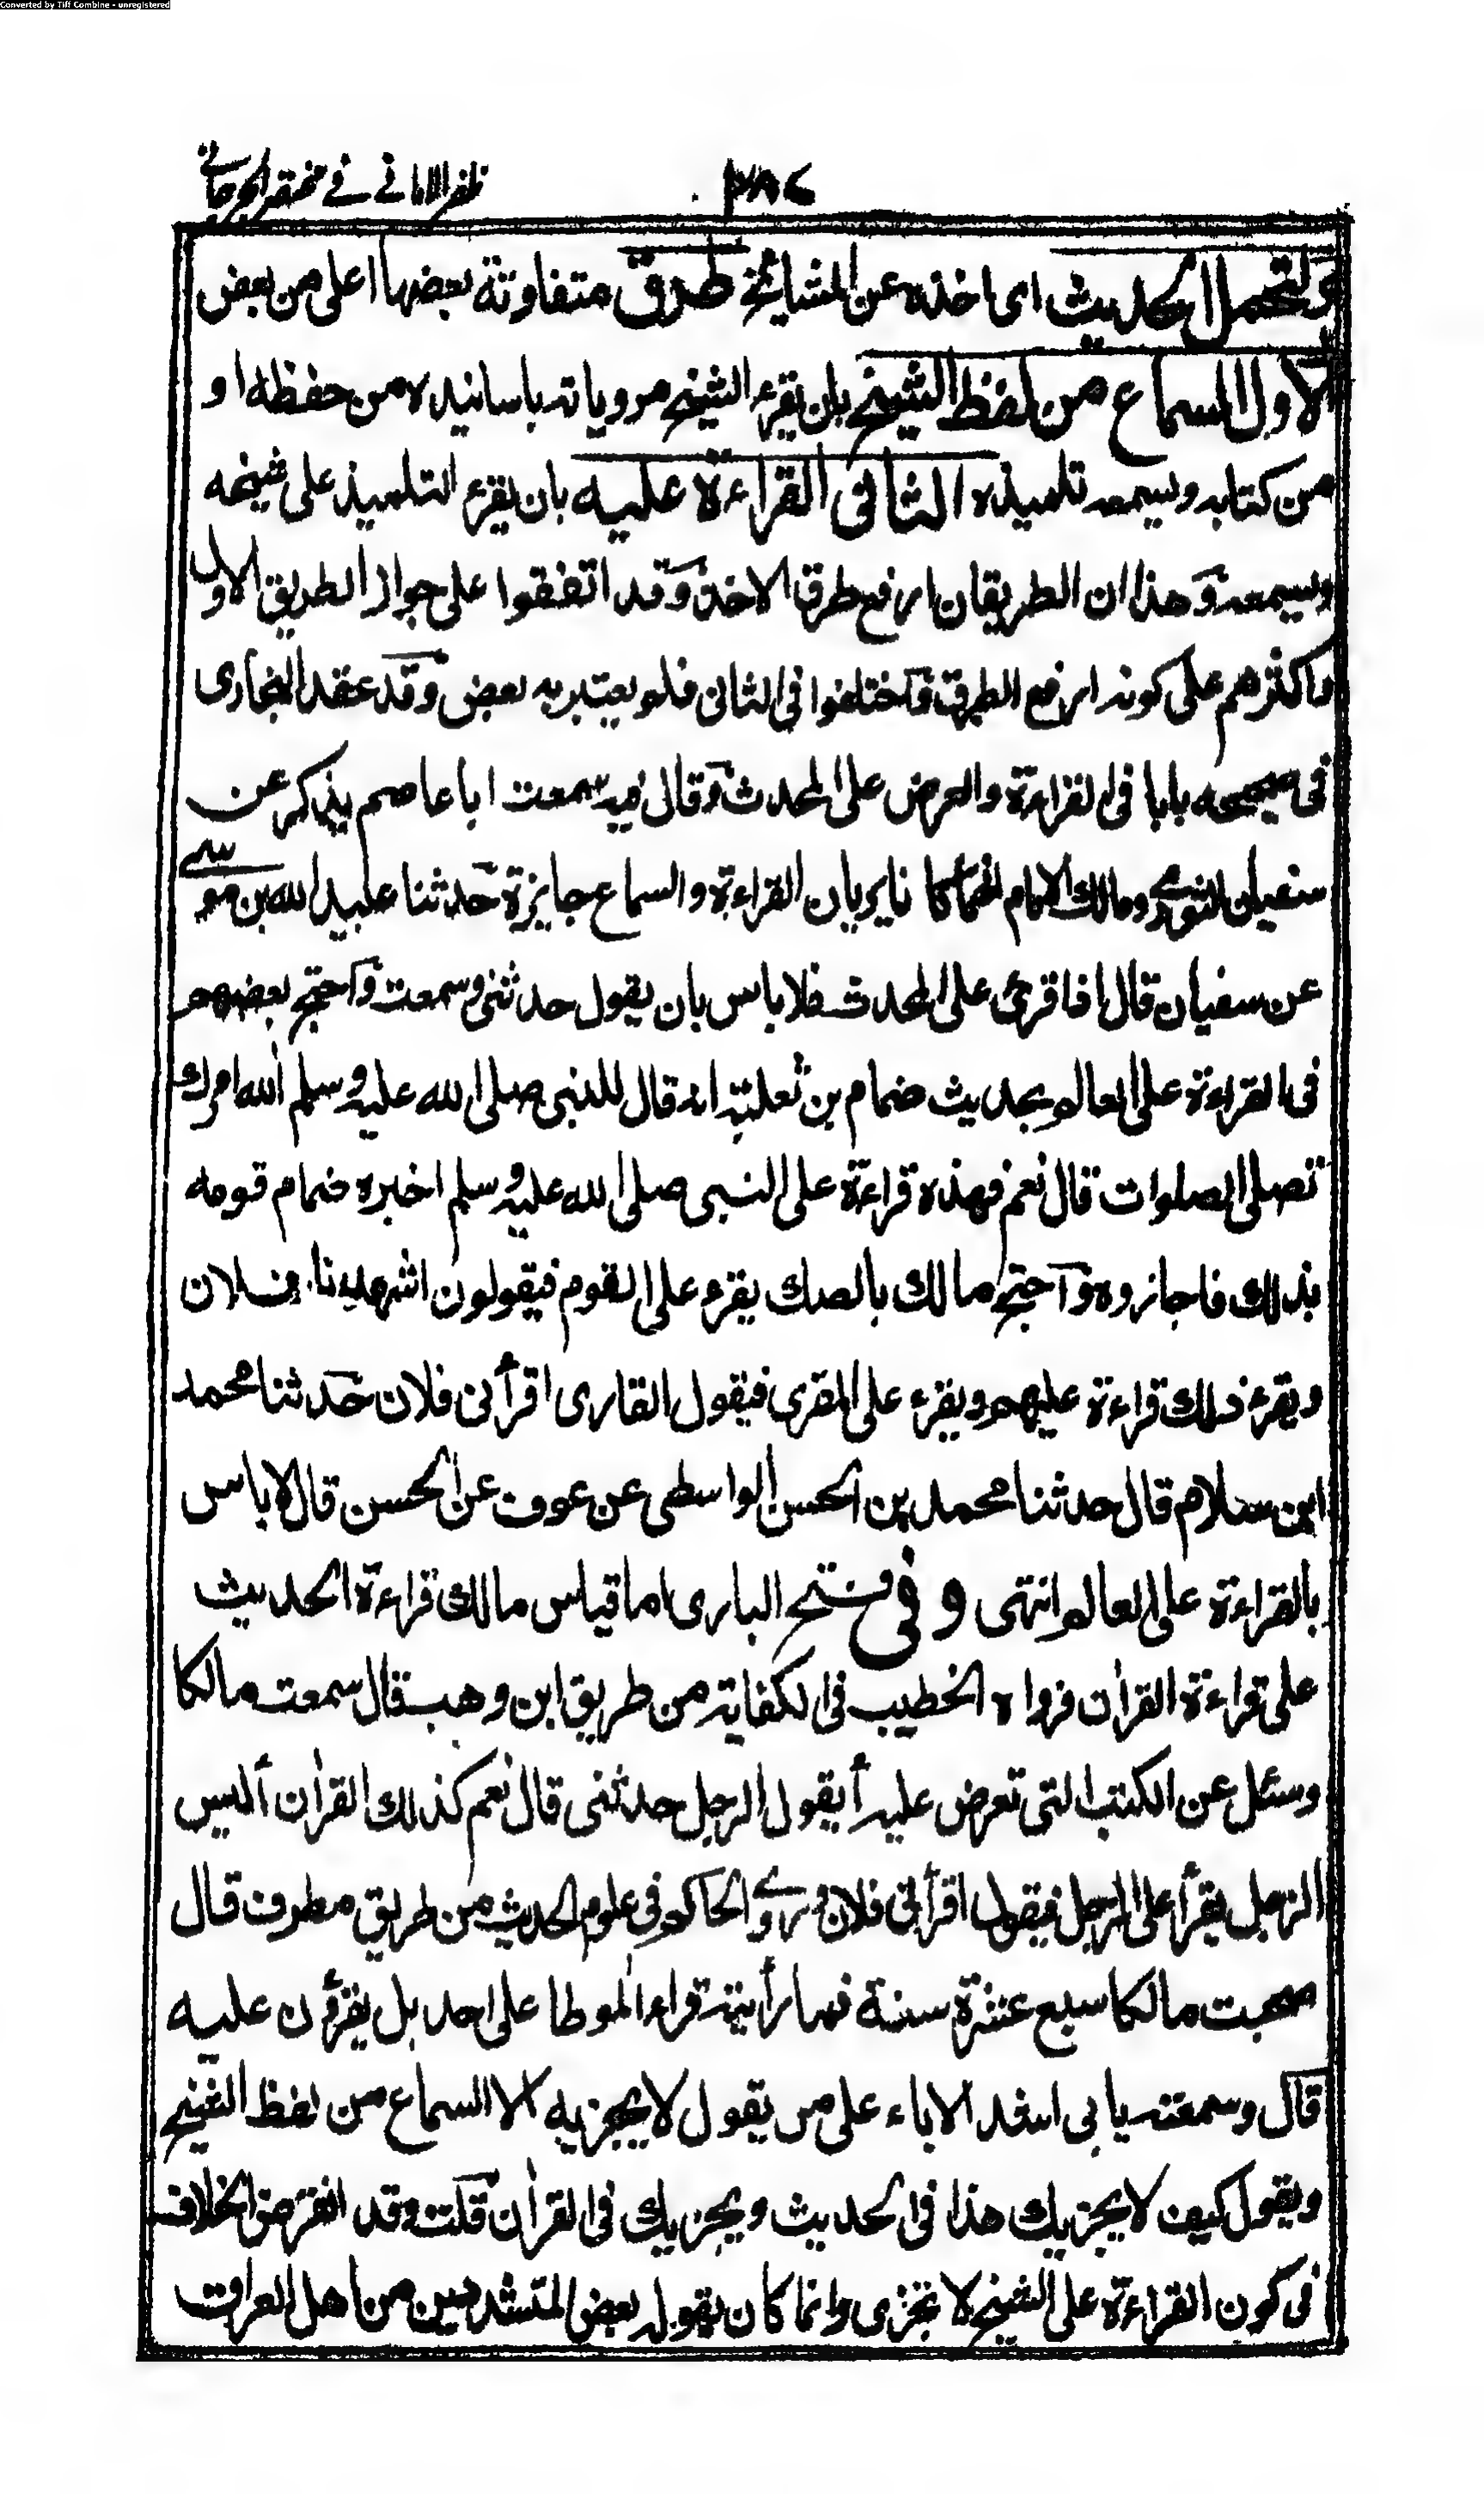 Converted by Tiff Combine - unregistered
ظفر الامانے فے مختصر الجرجانے
٢٨٧
ولتحمل الحديث اى اخذه عن المشائخ طرق متفاوتة بعضها اعلى من بعض
الاول السماع من لفظ الشيخ بان يقرء الشيخ مروياته باسانيده من حفظه او
من كتابه ويسمعه تلميذه الثانى القراءة عليه بان يقرء التلميذ على شيخه
ويسمعه وهذان الطريقان ارفع طرق الاخذ وقد اتفقوا على جواز الطريق الاول
واكثرهم على كونه ارفع الطرق واختلفوا فى الثانى فلم يعتبر به بعض وقد عقد البخارى
فى صحيحه بابا فى القراءة والعرض على المحدث وقال فيه سمعت ابا عاصم يذكر عن
سفيان الثورى ومالك الامام انهما كانا يريان القراءة والسماع جايزة حدثنا عبيد الله بن موسے
عن سفيان قال اذا قرئ على المحدث فلا باس بان يقول حدثنى وسمعت واحتج بعضهم
فى القراءة على العالم بحديث ضمام بن ثعلبة انه قال للنبى صلى الله عليه وسلم آلله امرك
تصلى الصلوات قال نعم فهذه قراءة على النبى صلى الله عليه وسلم اخبره ضمام قومه
بذلك فاجازوه واحتج مالك بالصك يقرء على القوم فيقولون اشهدنا فلان
ويقرء ذلك قراءة عليهم ويقرء على المقرى فيقول القارى اقرأنى فلان حدثنا محمد
ابن سلام قال حدثنا محمد بن الحسن الواسطى عن عوف عن الحسن قال لا باس
بالقراءة على العالم انتهى وفى فتح البارى اما قياس مالك قراءة الحديث
على قراءة القرآن فرواه الخطيب فى الكفاية من طريق ابن وهب قال سمعت مالكا
وسئل عن الكتب التى تعرض عليه أيقول الرجل حدثنى قال نعم كذلك القرآن أليس
الرجل يقرأ على الرجل فيقول اقرأنى فلان وروى الحاكم فى علوم الحديث من طريق مطرف قال
صحبت مالكا سبع عشرة سنة فما رأيته قراء الموطا على احد بل يقرؤن عليه
قال وسمعته يابى اشد الاباء على من يقول لا يجزيه الا السماع من لفظ الشيخ
ويقول كيف لا يجزيك هذا فى الحديث ويجزيك فى القرآن قلت وقد انقرض الخلاف
فى كون القراءة على الشيخ لا تجزى وانما كان يقوله بعض المتشددين من اهل العراق